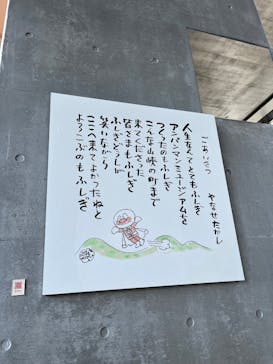 ごあいさつ
やなせたかし
人生なんてとてもふしぎ
アンパンマンミュージアムなど
つくったのもふしぎ
こんな山峡の町まで
来てくださった
皆さまもふしぎ
ふしぎどうしが
笑いながら
ここへ来てよかったねと
よろこぶのもふしぎ